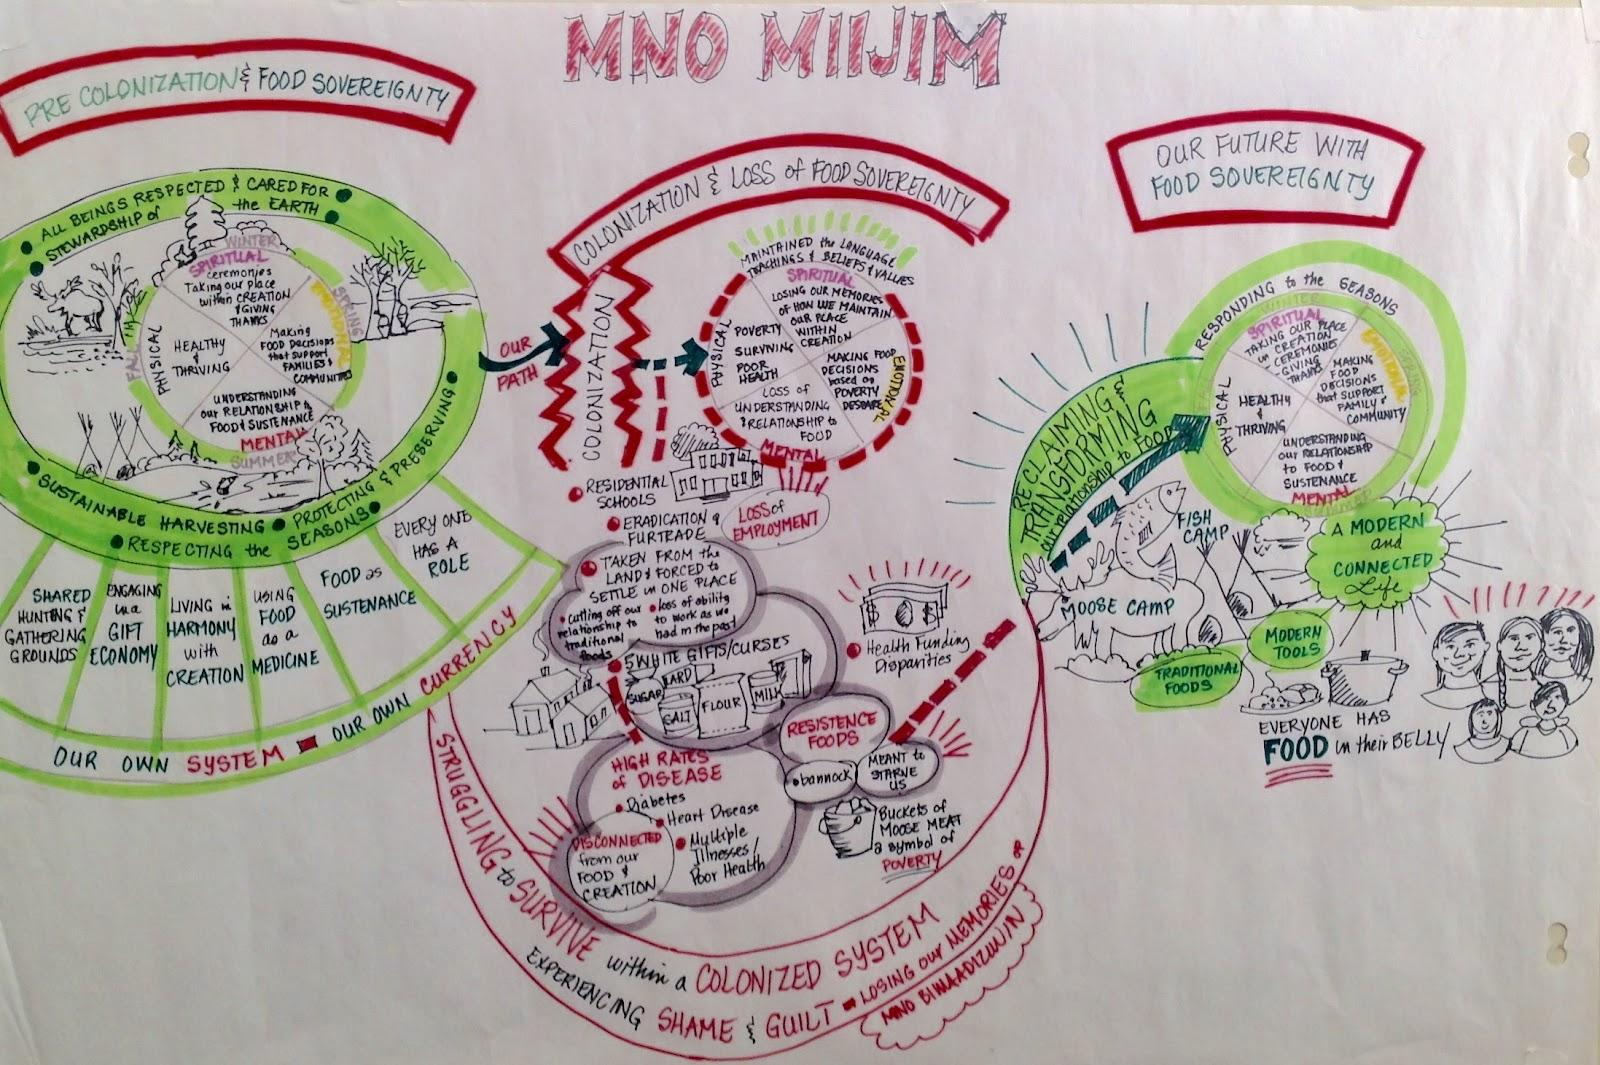 MNO MIIJIM
PRE COLONIZATION & FOOD SOVEREIGNTY
ALL BEINGS RESPECTED & CARED FOR
STEWARDSHIP of the EARTH
WINTER
SPIRITUAL
ceremonies
Taking our place
within CREATION
& GIVING
THANKS
SPRING
EMOTIONAL
Making
FOOD DECISIONS
that support
FAMILIES &
COMMUNITIES
FALL
PHYSICAL
HEALTHY
&
THRIVING
UNDERSTANDING
our RELATIONSHIP to
FOOD & SUSTENANCE
MENTAL
SUMMER
SUSTAINABLE HARVESTING
PROTECTING & PRESERVING
RESPECTING the SEASONS
SHARED
HUNTING &
GATHERING
GROUNDS
ENGAGING
in a
GIFT
ECONOMY
LIVING in
HARMONY
with
CREATION
USING
FOOD
as a
MEDICINE
FOOD as
SUSTENANCE
EVERY ONE
HAS A
ROLE
OUR OWN SYSTEM - OUR OWN CURRENCY
OUR
PATH
COLONIZATION & LOSS of FOOD SOVEREIGNTY
COLONIZATION
MAINTAINED the LANGUAGE
TEACHINGS & BELIEFS & VALUES
SPIRITUAL
LOSING OUR MEMORIES
OF HOW WE MAINTAIN
OUR PLACE
WITHIN
CREATION
PHYSICAL
POVERTY
SURVIVING
POOR
HEALTH
EMOTIONAL
MAKING FOOD
DECISIONS
based on
POVERTY
DESPARE
LOSS of
UNDERSTANDING
& RELATIONSHIP to
FOOD
MENTAL
RESIDENTIAL
SCHOOLS
LOSS of
EMPLOYMENT
ERADICATION of
FURTRADE
TAKEN FROM the
LAND & FORCED to
SETTLE in ONE PLACE
cutting off our
relationship to
traditional
foods
loss of ability
to work as we
had in the past
5 WHITE GIFTS/CURSES
SUGAR
LARD
SALT
FLOUR
MILK
Health Funding
Disparities
RESISTENCE
FOODS
bannock
MEANT to
STARVE
US
Buckets of
MOOSE MEAT
a symbol of
POVERTY
HIGH RATES
of DISEASE
Diabetes
Heart Disease
Multiple
Illnesses/
Poor Health
DISCONNECTED
from our
FOOD &
CREATION
STRUGGLING to SURVIVE within a COLONIZED SYSTEM
EXPERIENCING SHAME & GUILT - LOSING OUR MEMORIES OF
MNO BIMAADIZUWIN
OUR FUTURE WITH
FOOD SOVEREIGNTY
RECLAIMING &
TRANSFORMING
our relationship to Food
RESPONDING to the SEASONS
WINTER
SPIRITUAL
TAKING OUR PLACE
in CREATION
- CEREMONIES
- GIVING
THANKS
EMOTIONAL
SPRING
MAKING
FOOD
DECISIONS
that SUPPORT
FAMILY &
COMMUNITY
FALL
PHYSICAL
HEALTHY
&
THRIVING
UNDERSTANDING
OUR RELATIONSHIP
to FOOD &
SUSTENANCE
MENTAL
A MODERN
and
CONNECTED
Life
FISH
CAMP
MOOSE CAMP
MODERN
TOOLS
TRADITIONAL
FOODS
EVERYONE HAS
FOOD in their BELLY